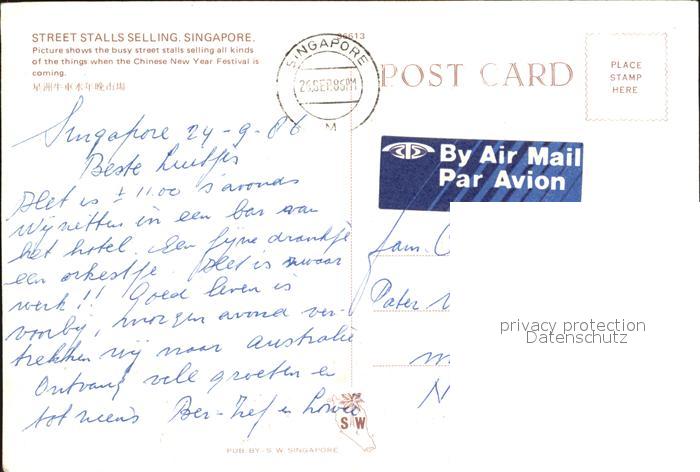 STREET STALLS SELLING. SINGAPORE.
Picture shows the busy street stalls selling all kinds
of the things when the Chinese New Year Festival is
coming.
星洲牛車水年晚市場
SINGAPORE
POST CARD
PLACE
STAMP
HERE
By Air Mail
Par Avion
Singapore 24-9-86
Beste
Het is ± 11.00 's avonds
Wij zitten in een bar van
het hotel. Een fijne drankje
een orkestje. Het is zwaar
werk!! Goed leven is
voorbij, morgen avond ver-
trekken wij naar australië
Ontvang vele groeten en
tot ziens
Fam.
Pater
N
privacy protection
Datenschutz
SW
PUB. BY-S. W. SINGAPORE